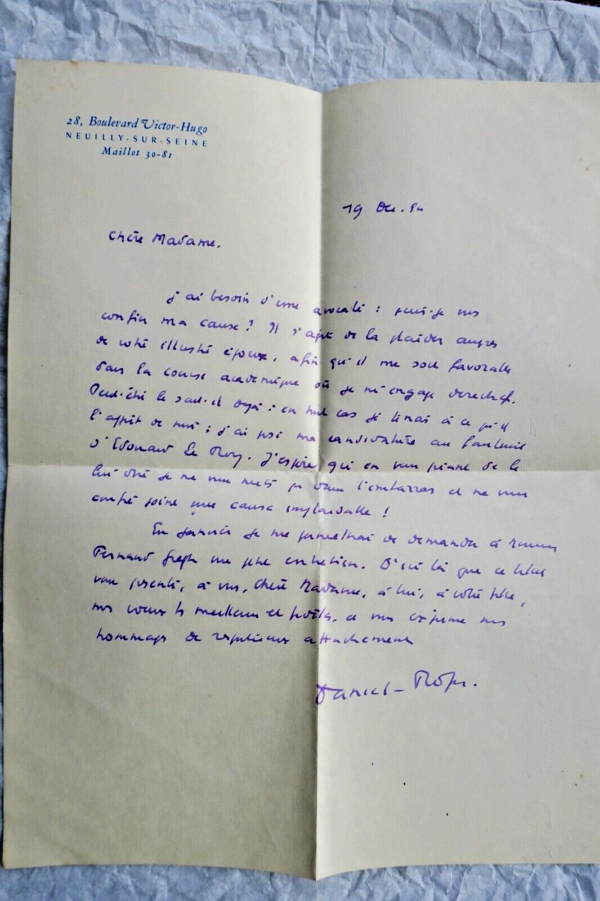 28, Boulevard Victor-Hugo
NEUILLY-SUR-SEINE
Maillot 30-81
19 Dec. 54
Chère Madame,
j'ai besoin d'une avocate : puis-je vous
confier ma cause ? Il s'agit de la plaider auprès
de votre illustre époux, afin qu'il me soit favorable
dans la course académique où je m'engage derechef.
Peut-être le sait-il déjà : en tout cas je tenais à ce qu'il
l'apprît de moi ; j'ai posé ma candidature au fauteuil
d'Edouard Le Roy. J'espère qu'en vous priant de le
lui dire je ne vous mets pas dans l'embarras et ne vous
confie point une cause implaidable !
En janvier je me permettrai de demander à
Fernand Gregh un entretien. D'ici là que ce billet
vous présente, à vous, Chère Madame, à lui, à votre fille,
mes voeux les meilleurs et vous exprime mes
hommages de respectueux attachement
Daniel-Rops.